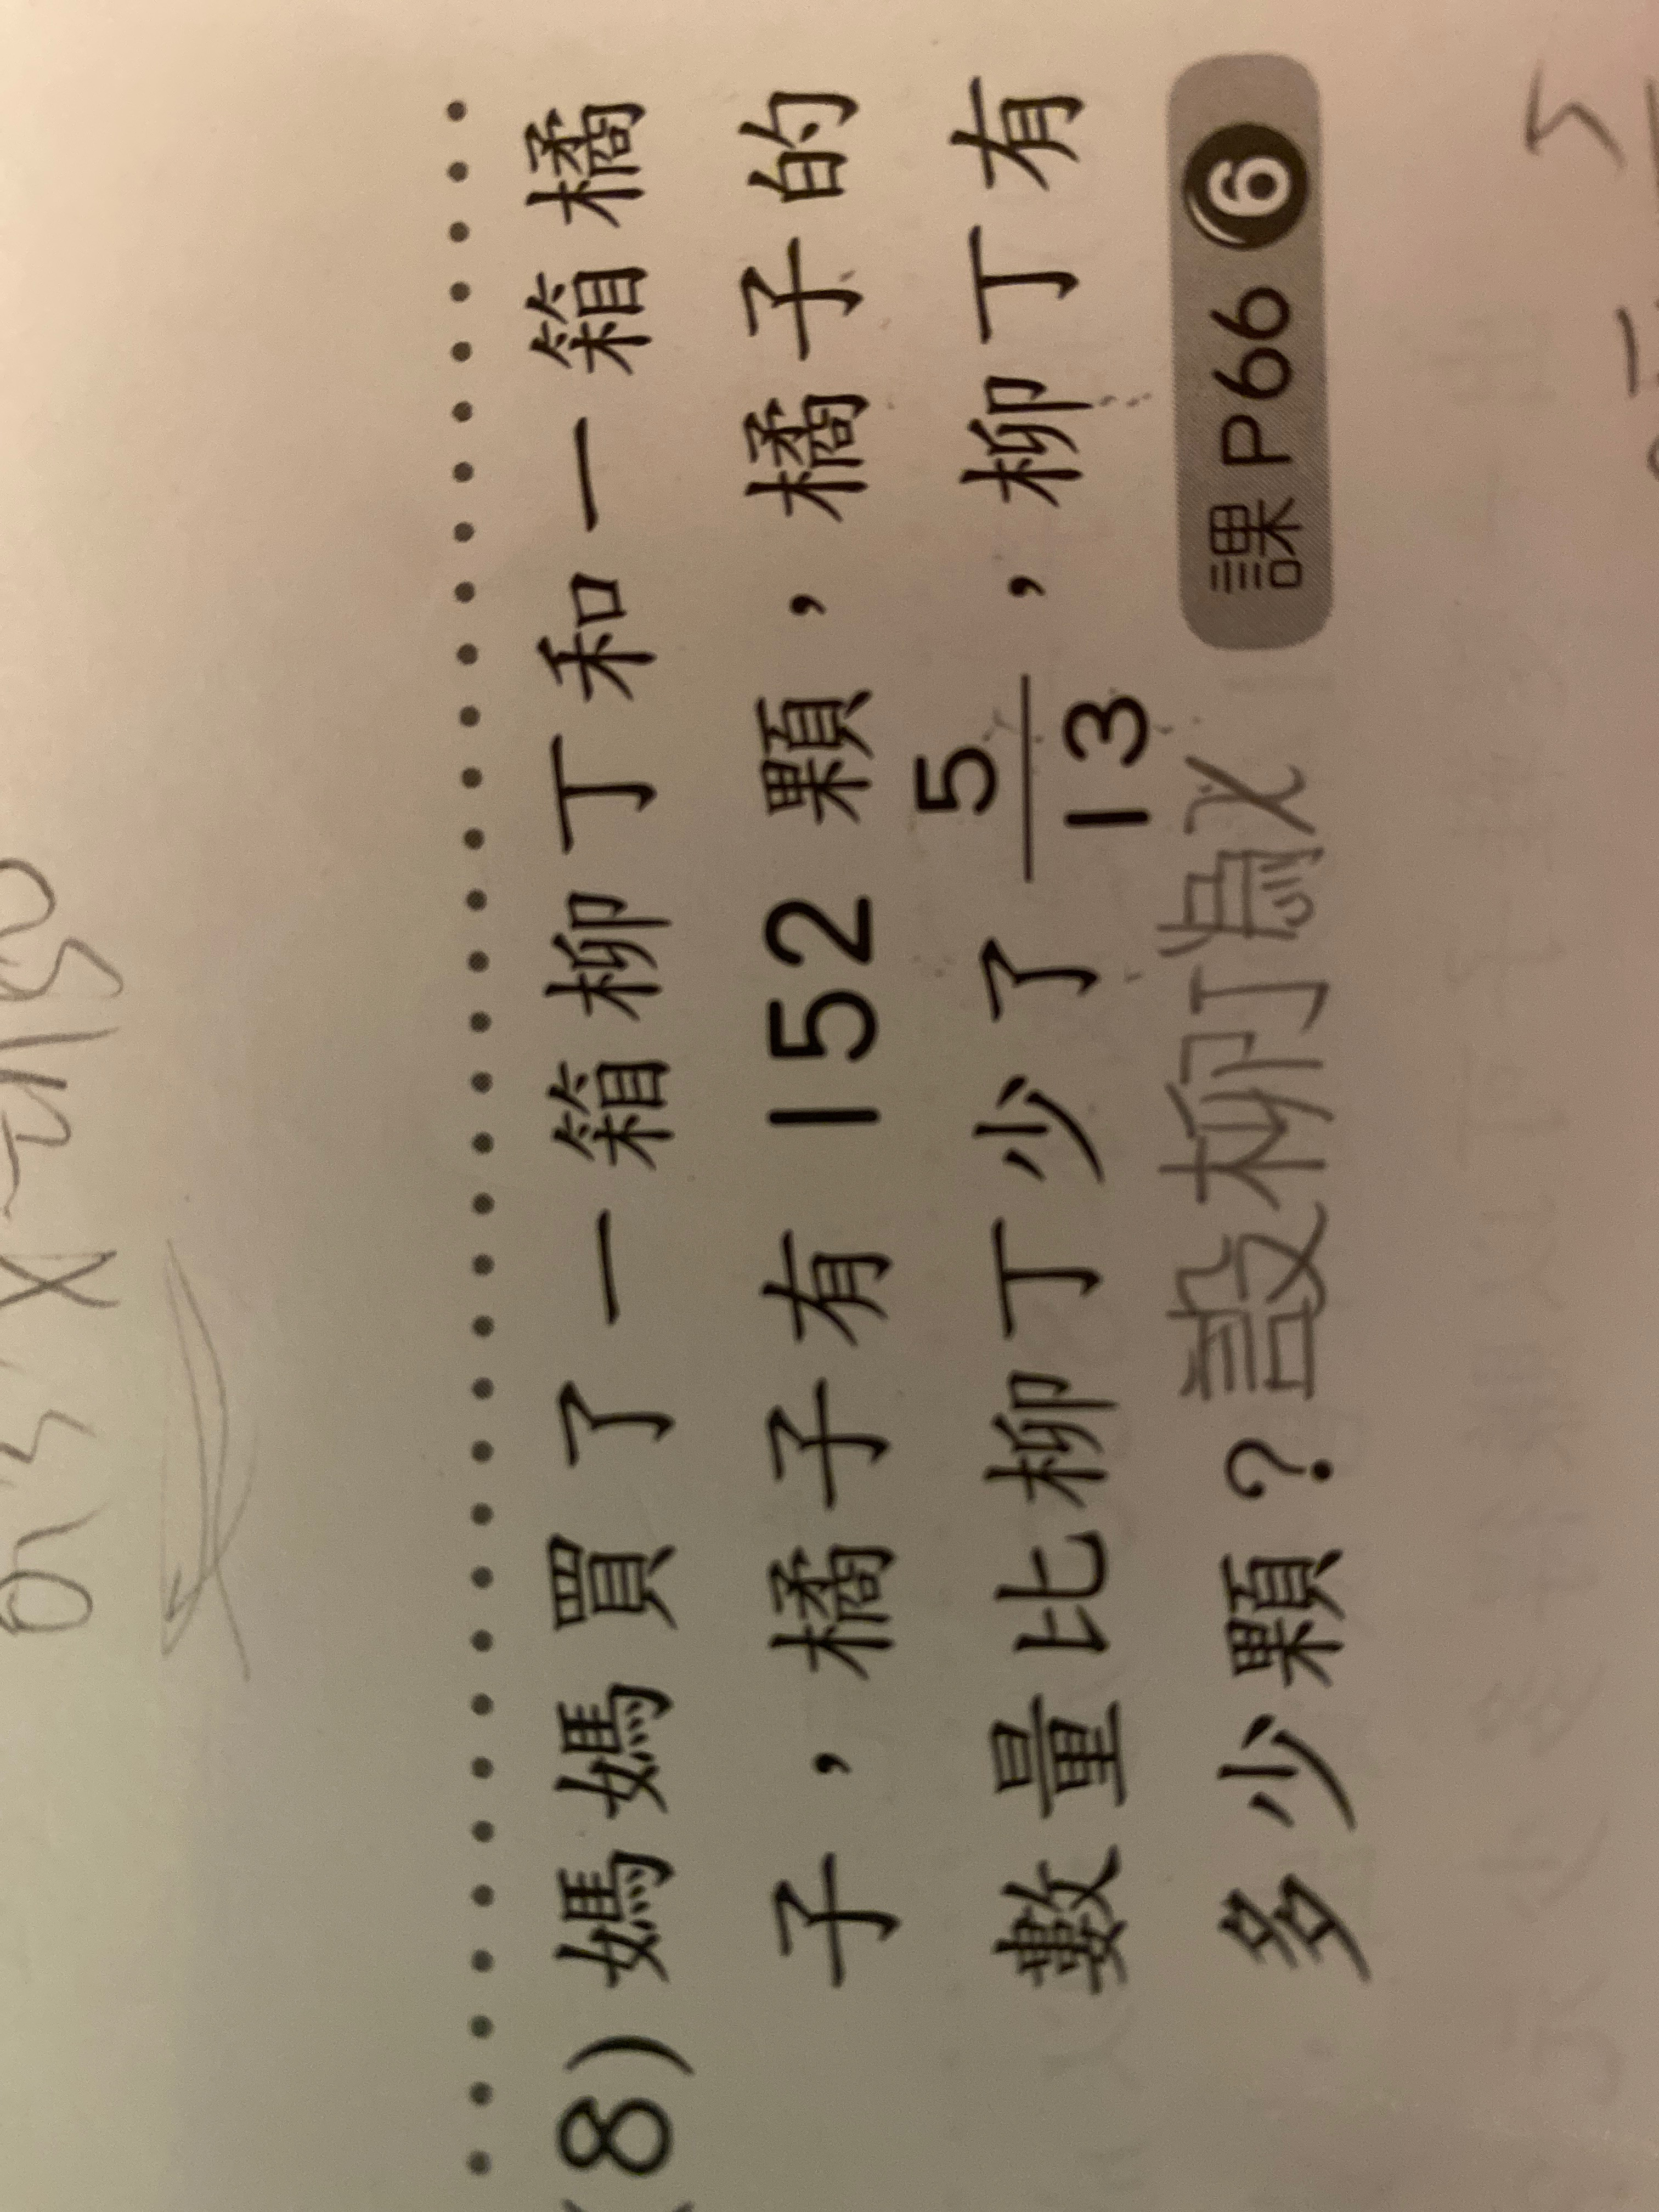 (8) 媽媽買了一箱柳丁和一箱橘
子，橘子有 152 顆，橘子的
數量比柳丁少了 5/13，柳丁有
多少顆？設柳丁為x 課P66 6